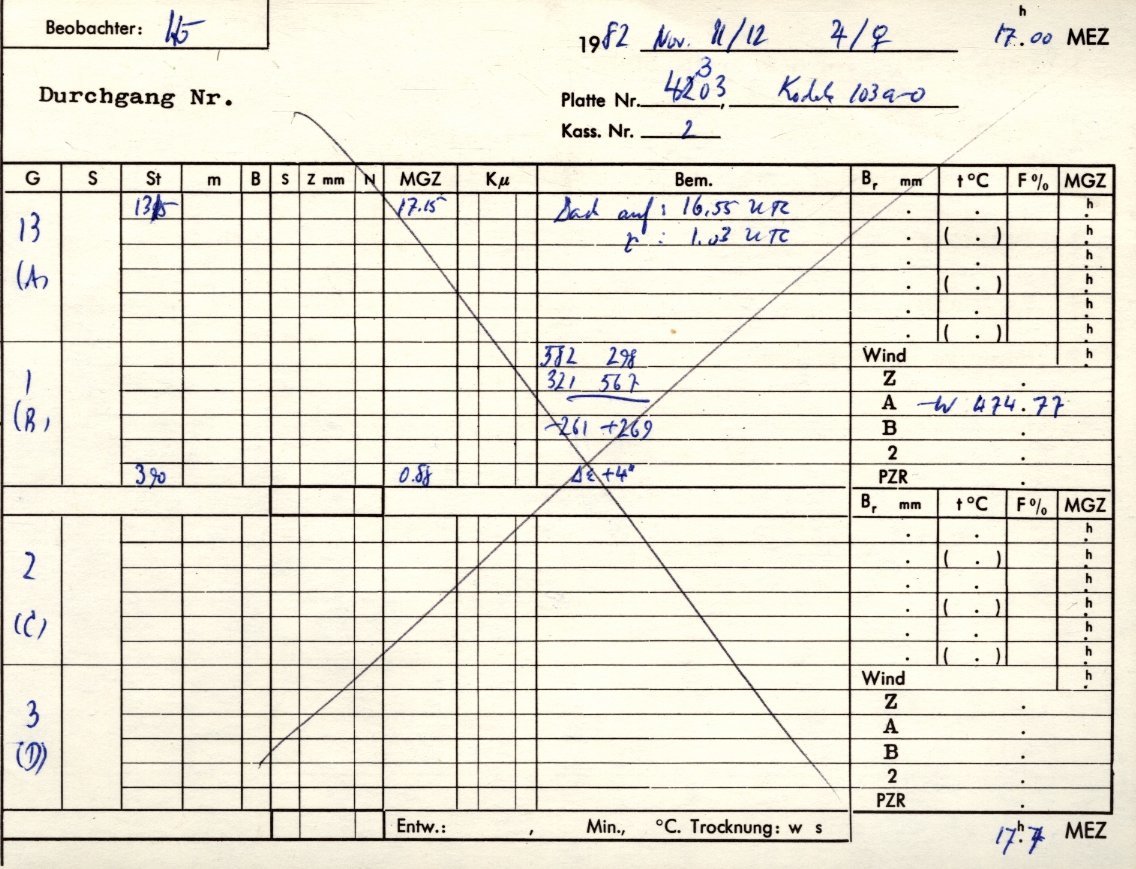 Beobachter:
1982 Nov. 11/12 4/♀ 17.h00 MEZ
Durchgang Nr.
Platte Nr. 4203, 3 Kodak 103a-O
Kass. Nr. 2
G S St m B S Z mm N MGZ Kμ Bem. Br mm t °C F % MGZ
13 1315 17.15 Dach auf: 16.55 UTC . . h
z: 1.03 UTC . ( . ) h
(A) . . h
. ( . ) h
. . h
. ( . ) h
582 298 Wind h
1 321 567 Z .
(B) A -W 474.77
-261 +269 B .
2 .
390 0.58 Δε +4" PZR .
Br mm t °C F % MGZ
. . h
2 . ( . ) h
. . h
(C) . ( . ) h
. . h
. ( . ) h
Wind h
3 Z .
A .
(D) B .
2 .
PZR .
Entw.: , Min., °C. Trocknung: w s 17.h MEZ